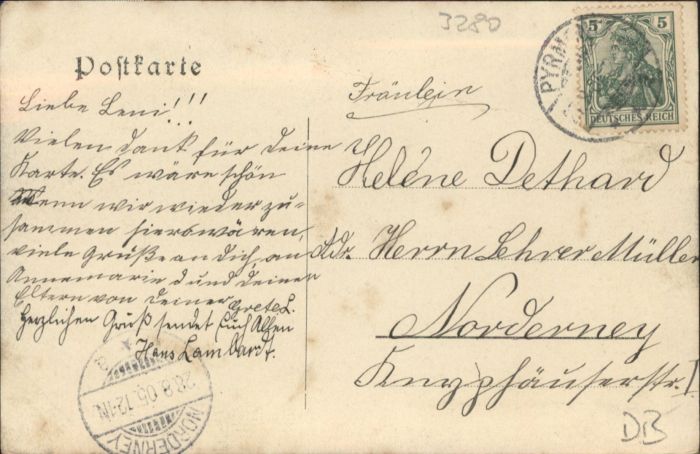 3280
Postkarte
Liebe Leni!!!
Vielen Dank für Deine
Karte. Es wäre schön
Wenn wir wieder zu-
sammen hier wären,
viele Grüße an Dich, an
Annemarie und Deinen
Eltern von Deiner Grete L.
Herzlichen Gruß sendet Euch Allen
Hans Lambardt.
Fräulein
Helene Dethard
Adr. Herrn Lehrer Müller
Norderney
Knyphäuserstr. 1
5 5
DEUTSCHES REICH
PYRM
NORDERNEY
28.8.05.12-1N
DB